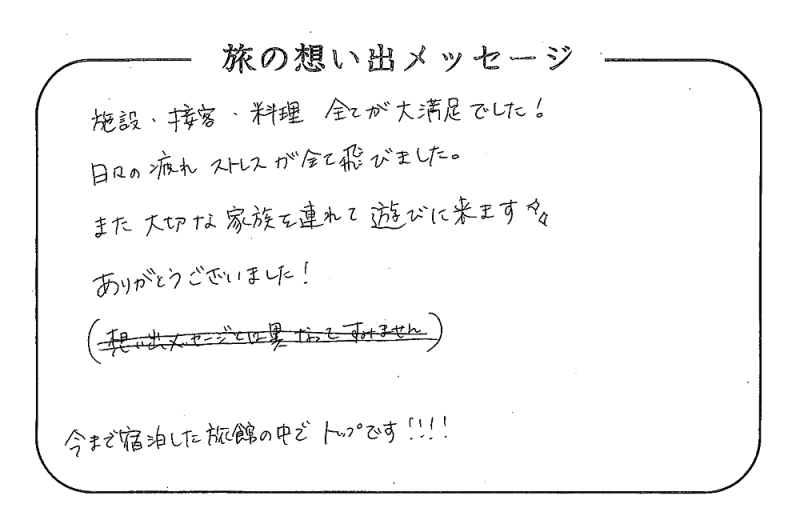 旅の想い出メッセージ
施設・接客・料理 全てが大満足でした!
日々の疲れ ストレスが全て飛びました。
また 大切な 家族を連れて 遊びに来ます☆☆
ありがとうございました!
(想い出メッセージとは異なってすみません)
今まで宿泊した旅館の中で トップです!!!!